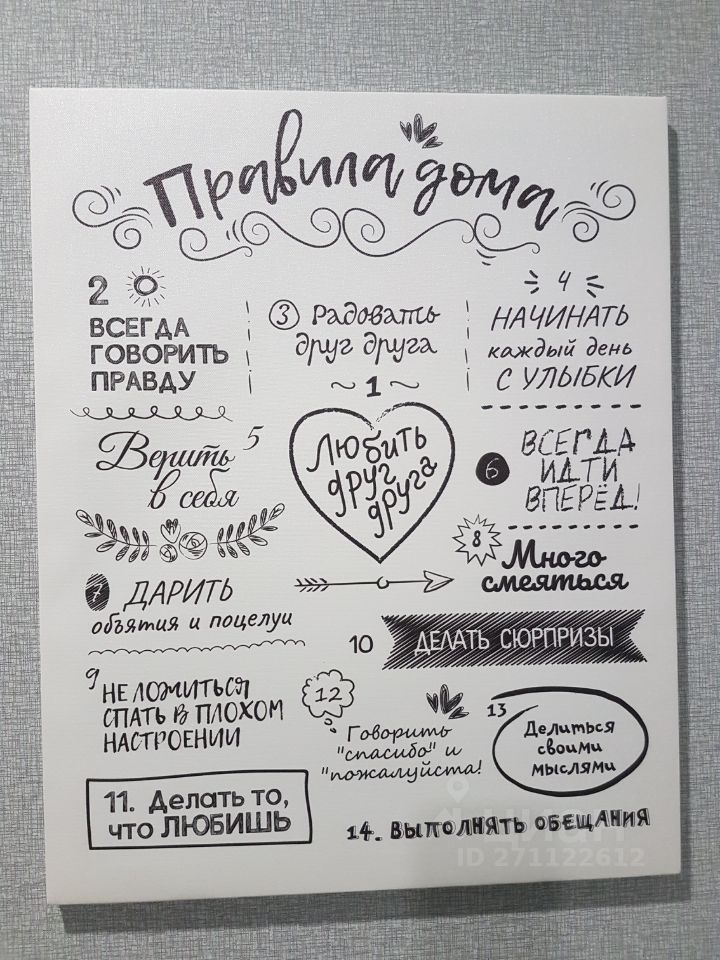 Правила дома
2
ВСЕГДА
ГОВОРИТЬ
ПРАВДУ
3 Радовать
друг друга
4
НАЧИНАТЬ
каждый день
С УЛЫБКИ
~1~
Любить
друг
друга
Верить 5
в себя
6 ВСЕГДА
ИДТИ
ВПЕРЁД!
7 ДАРИТЬ
объятия и поцелуи
8 Много
смеяться
9 НЕ ЛОЖИТЬСЯ
СПАТЬ В ПЛОХОМ
НАСТРОЕНИИ
10 ДЕЛАТЬ СЮРПРИЗЫ
12
Говорить
"спасибо" и
"пожалуйста!
13
Делиться
своими
мыслями
11. Делать то,
что ЛЮБИШЬ
14. ВЫПОЛНЯТЬ ОБЕЩАНИЯ
ЦИАН
ID 271122612